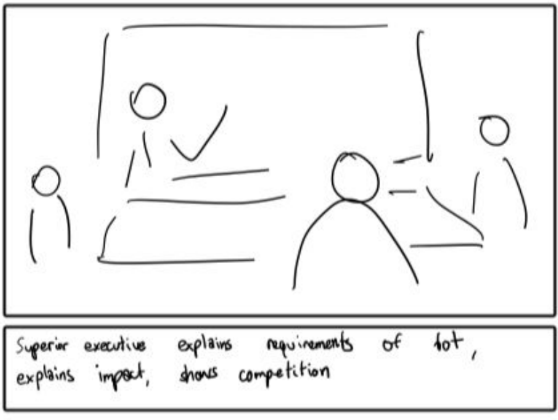 Superior executive explains requirements of bot,
explains impact, shows competition